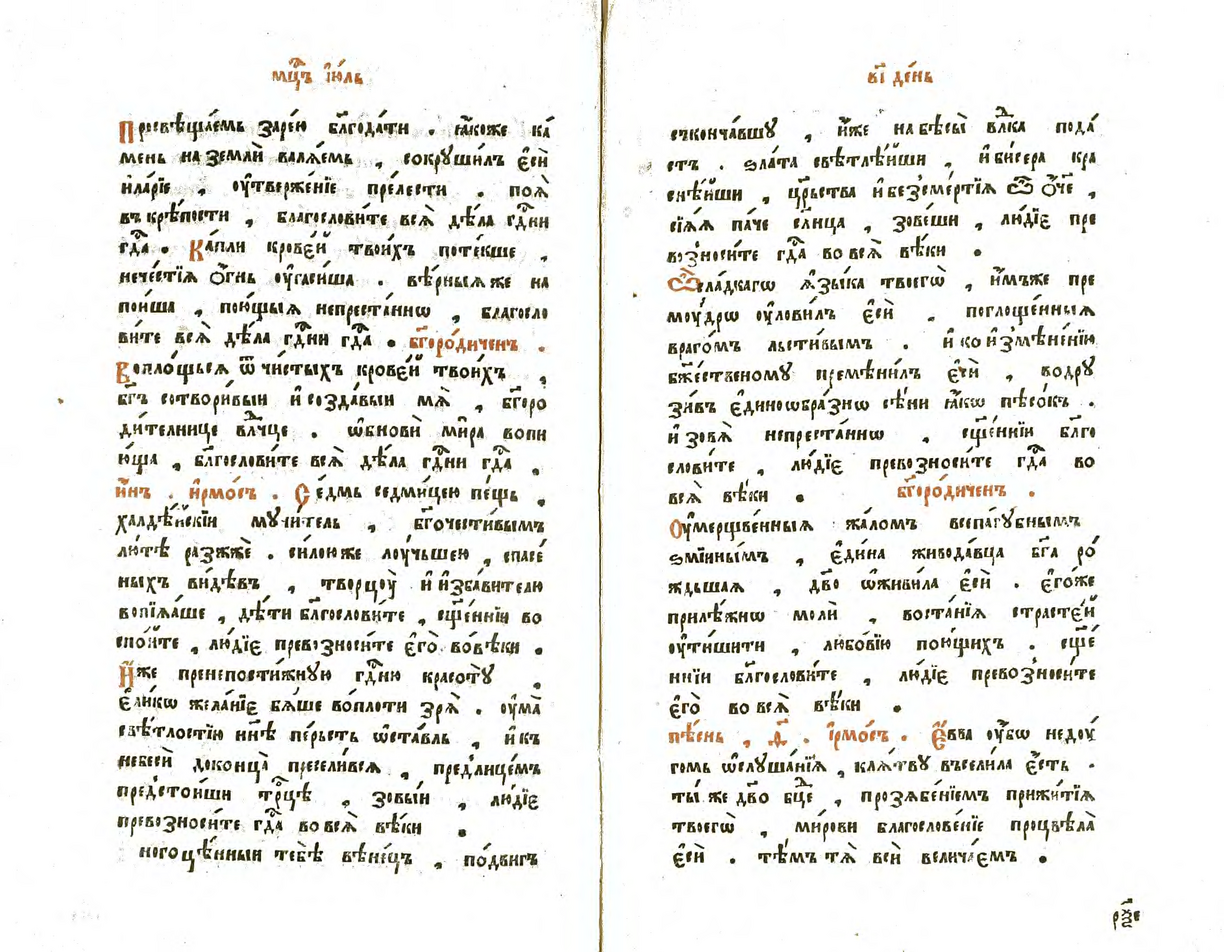 мц҃ъ і҆ю́ль
Просвѣща́емь заре́ю бл҃года́ти . ꙗ҆́коже ка́
мень на землѝ валѧ́емь , сокруши́лъ є҆сѝ
и҆ла́рїе , ѹ҆твержє́нїе пре́лести . поѧ̀
въ крѣ́пости , благослови́те всѧ̀ дѣ́ла гдⷭ҇ни
гдⷭ҇а . Ка́пли крове́й твои́хъ поте́кше ,
нече́стїѧ ѻ҆́гнь ѹ҆гаси́ша . вѣ́рныѧ же на
пои́ша , пою́щыѧ непреста́ннѡ , благосло
ви́те всѧ̀ дѣ́ла гдⷭ҇ни гдⷭ҇а . бг҃оро́диченъ .
Вопло́щьсѧ ѿ чи́стыхъ крове́й твои́хъ ,
бг҃ъ сотвори́выи и҆ созда́выи мѧ̀ , бг҃оро
ди́телнице влⷣчце . ѡ҆бновѝ ми́ра вопи
ю́ща , бл҃гослови́те всѧ̀ дѣ́ла гдⷭ҇ни гдⷭ҇а .
и҆́нъ . і҆рмо́съ . Се́дмь седми́цею пе́щь ,
халдѣ́йскїи мучи́тель , бг҃очести́вымъ
лю́тѣ разжжѐ . си́лою же лоу́чьшею , спасе́
ныхъ ви́дѣвъ , творцоу̀ и҆ и҆зба́вителю
вопїѧ́ше , дѣ́ти бл҃гослови́те , сщ҃е́нніи во
спо́йте , лю́дїе превозноси́те є҆го̀ во вѣ́ки .
И҆́же пренепости́жную гдⷭ҇ню красотꙋ̀ ,
є҆ли́кѡ жела́нїе бѧ́ше во пло́ти зрѧ̀ . ѹ҆ма̀
свѣ́тлостїю нн҃ѣ пе́рьсть ѡ҆ста́вль , и҆ къ
небесѝ доконца̀ пресели́всѧ , предлице́мъ
предстои́ши трⷪ҇цѣ , зовы́и , лю́дїе
превозноси́те гдⷭ҇а во всѧ̀ вѣ́ки .
ногоцѣ́нныи тебѣ̀ вѣне́цъ , по́двигъ
в҃і де́нь
скончавшу , и҆́же на бѣ́сы влⷣка пода́
стъ . ѕла́та свѣтлѣ́йши , и҆ би́сера кра
снѣ́йши , црⷭ҇ьства и҆ безсме́ртїѧ ѿ ѻ҆́че ,
сїѧ́ѧ па́че сл҃нца , зове́ши , лю́дїе пре
возноси́те гдⷭ҇а во всѧ̀ вѣ́ки .
Ѿ сла́дкагѡ ѧ҆зы́ка твоегѡ̀ , и҆́мъже пре
моу́дрѡ ѹ҆лови́лъ є҆сѝ . поглоще́нныѧ
враго́мъ льсти́вымъ . и҆ ко и҆змѣне́нїю
бжⷭ҇ественому премѣни́лъ є҆сѝ , водру
зи́въ є҆динѡѡбра́знѡ сѣ́ни ꙗ҆́кѡ пѣсо́къ .
и҆ зовѧ̀ непреста́ннѡ , сщ҃е́нніи бл҃го
слови́те , лю́дїе превозноси́те гдⷭ҇а во
всѧ̀ вѣ́ки . бг҃оро́диченъ .
Ѹ҆мерщве́нныѧ жа́ломъ всепа́губнымъ
ѕмїи́нымъ , є҆ди́на живода́вца бг҃а ро́
ждьшаѧ , дв҃о ѡ҆живи́ла є҆сѝ . є҆го́же
прилѣ́жнѡ молѝ , воста́нїѧ страсте́й
ѹ҆тиши́ти , любо́вїю пою́щихъ . сщ҃е́
нніи бл҃гослови́те , лю́дїе превозноси́те
є҆го̀ во всѧ̀ вѣ́ки .
пѣ́снь , ѳ҃ . і҆рмо́съ . Є҆́вва ѹ҆́бѡ недоу́
гомь ѡ҆слуша́нїѧ , клѧ́тву въсели́ла є҆́сть .
ты́ же дв҃о бц҃е , прозѧбе́нїемъ прижи́тїѧ
твоегѡ̀ , ми́рови благослове́нїе процвѣла̀
є҆сѝ . тѣ́мъ тѧ̀ всѝ велича́емъ .
рѯ҃е